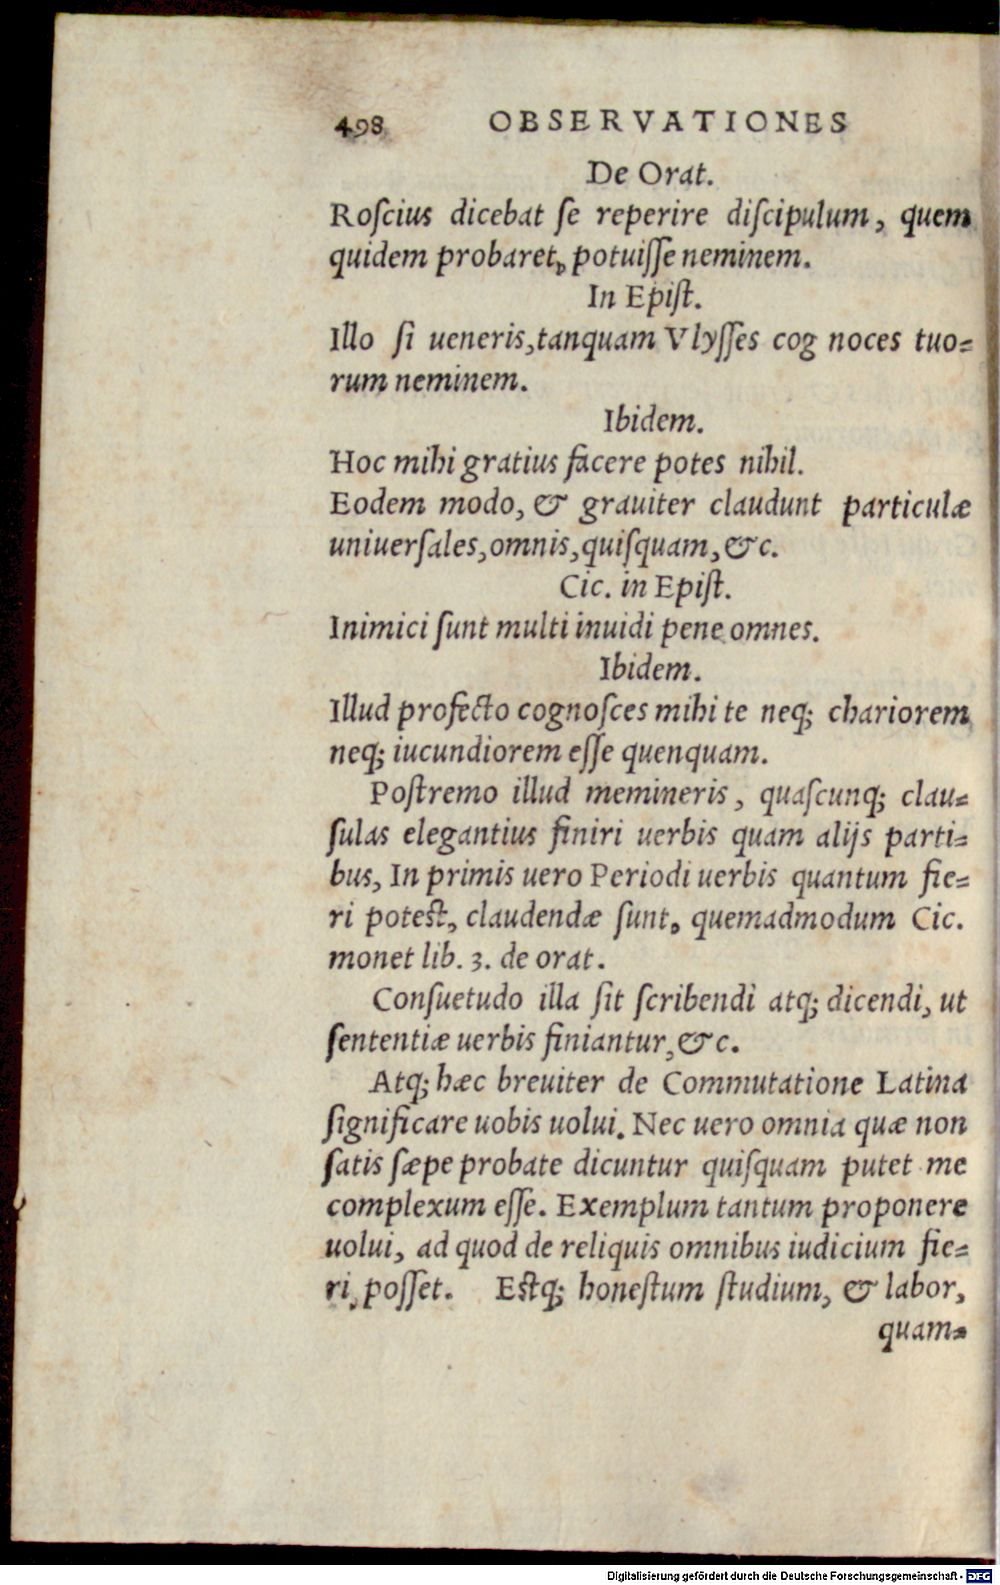 498 OBSERVATIONES
De Orat.
Roſcius dicebat ſe reperire diſcipulum, quem
quidem probaret, potuiſſe neminem.
In Epiſt.
Illo ſi ueneris,tanquam Vlyſſes cog noces tuo=
rum neminem.
Ibidem.
Hoc mihi gratius facere potes nihil.
Eodem modo, & grauiter claudunt particulæ
uniuerſales,omnis,quiſquam,&c.
Cic. in Epiſt.
Inimici ſunt multi inuidi pene omnes.
Ibidem.
Illud profecto cognoſces mihi te neq; chariorem
neq; iucundiorem eſſe quenquam.
Poſtremo illud memineris, quaſcunq; clau=
ſulas elegantius finiri uerbis quam alijs parti=
bus, In primis uero Periodi uerbis quantum fie=
ri poteſt, claudendæ ſunt, quemadmodum Cic.
monet lib. 3. de orat.
Conſuetudo illa ſit ſcribendi atq; dicendi, ut
ſententiæ uerbis finiantur,&c.
Atq; hæc breuiter de Commutatione Latina
ſignificare uobis uolui. Nec uero omnia quæ non
ſatis ſæpe probate dicuntur quiſquam putet me
complexum eſſe. Exemplum tantum proponere
uolui, ad quod de reliquis omnibus iudicium fie=
ri poſſet. Eſtq; honeſtum ſtudium, & labor,
quam=
Digitalisierung gefördert durch die Deutsche Forschungsgemeinschaft - DFG